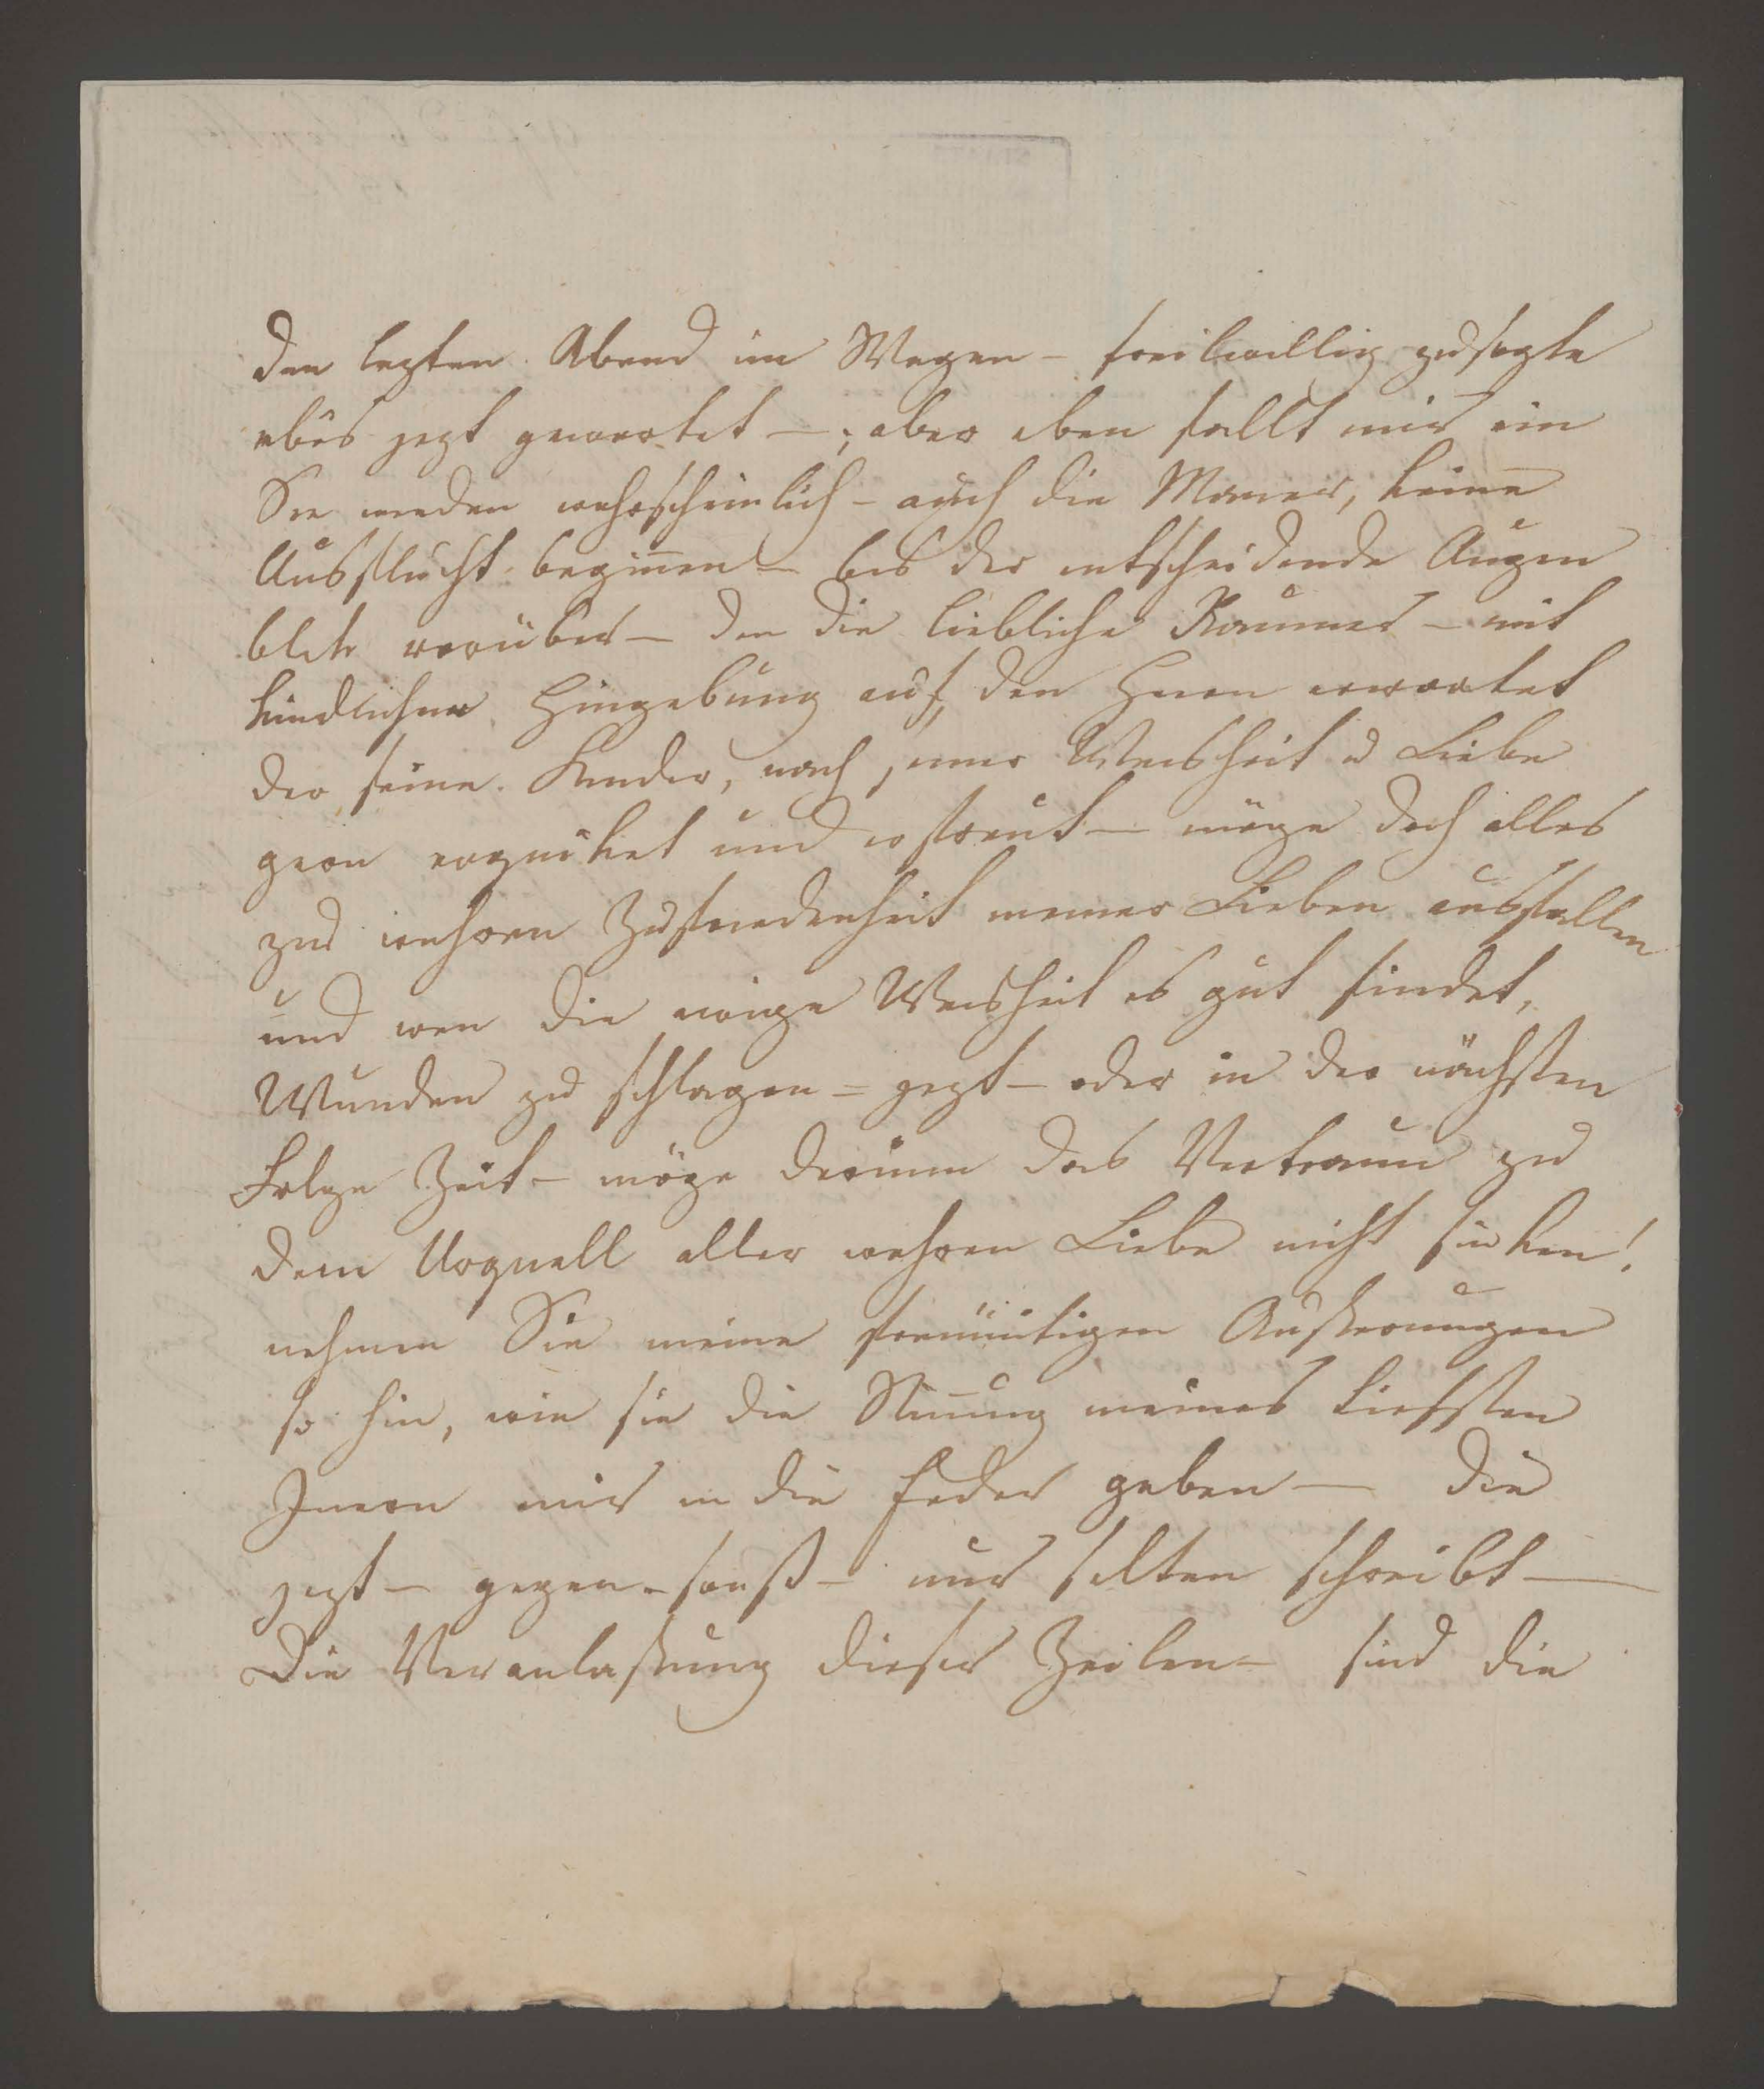 den lezten Abend im Wagen – freiwillig zusagte
bis jezt gewartet –; aber eben fällt mir ein
Sie werden wahrscheinlich – auch die Mama, keine
Ausflucht beginnen – bis der entscheidende Augen
blik vorüber – den die liebliche – mit
kindlicher Hingebung auf den Herrn erwartet
der seine Kinder, nach seiner Weisheit u Liebe
gern erquiket und erfreut – möge doch alles
zur wahren Zufriedenheit meiner Lieben ausfallen
und wen die ewige Weisheit es gut findet,
Wunden zu schlagen – jezt – oder in der nächsten
Folge Zeit – möge darinn das Vertraun zu
dem Urquell aller wahren Liebe nicht sinken!
nehmen Sie meine freimütigen Äußerungen
so hin, wie sie die Stim̄ung meines tiefsten
Innern mir in die Feder geben – die
jezt – gegen sonst – nur selten schreibt –
Die Veranlaßung dieser Zeilen – sind die